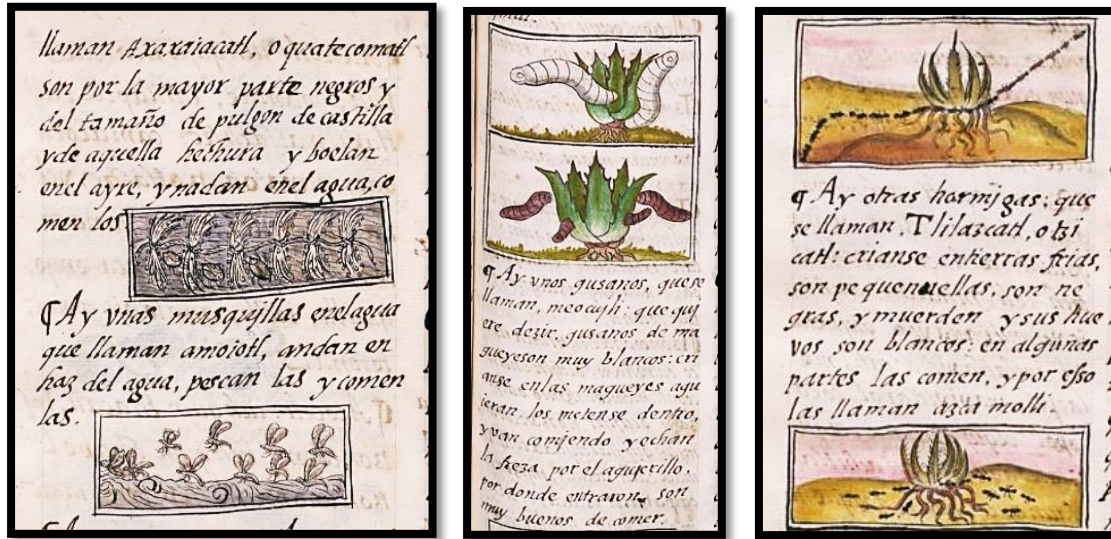 llaman Axaxaiacatl, o quatecomatl
son por la mayor parte negros y
del tamaño de pulgon de castilla
y de aquella hechura y boelan
enel ayre, y nadan enel agua, co
men los
¶ Ay vnas musquillas enel agua
que llaman amoiotl, andan en
haz del agua, pescan las y comen
las.
¶ Ay vnos gusanos, que se
llaman, meocujli: que quj
ere, dezir, gusanos de ma
gueyes on muy blancos: cri
anse en las magueyes agu
ieran, los metense dentro,
y van comjendo y echan
la freza por el agujerillo,
por donde entraron, son
muy buenos de comer.
¶ Ay otras hormjgas: que
se llaman, Tlilazcatl, o tzi
catl: crianse entierras frias,
son pequenuellas, son ne
gras, y muerden y sus hue
vos son blancos: en algunas
partes las comen, y por esso
las llaman azca molli.